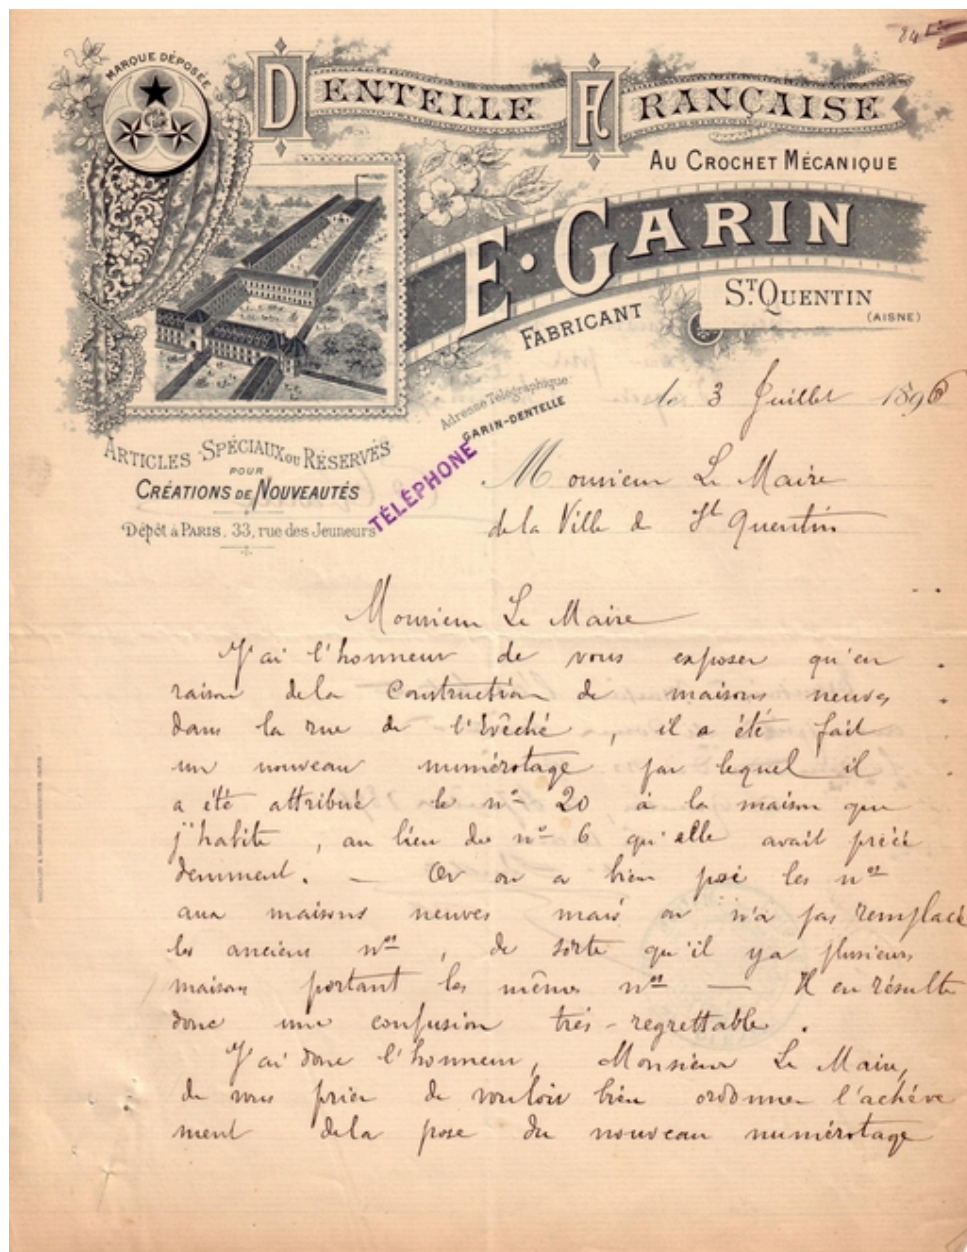 MARQUE DÉPOSÉE
DENTELLE FRANÇAISE
AU CROCHET MÉCANIQUE
E. GARIN
FABRICANT
ST QUENTIN
(AISNE)
Adresse Télégraphique:
GARIN-DENTELLE
TÉLÉPHONE
ARTICLES SPÉCIAUX OU RÉSERVÉS
POUR
CRÉATIONS DE NOUVEAUTÉS
Dépôt à PARIS, 33, rue des Jeuneurs
le 3 Juillet 1896
Monsieur Le Maire
de la Ville de St Quentin
Monsieur Le Maire
J'ai l'honneur de vous exposer qu'en
raison de la Construction de maisons neuves
dans la rue de l'Evêché, il a été fait
un nouveau numérotage par lequel il
a été attribué le n° 20 à la maison que
j'habite, au lieu du n° 6 qu'elle avait précé
demment. — Or on a bien posé les nos
aux maisons neuves mais on n'a pas remplacé
les anciens nos, de sorte qu'il y a plusieurs
maisons portant les mêmes nos — Il en résulte
donc une confusion très-regrettable.
J'ai donc l'honneur, Monsieur Le Maire,
de vous prier de vouloir bien ordonner l'achéve
ment de la pose du nouveau numérotage